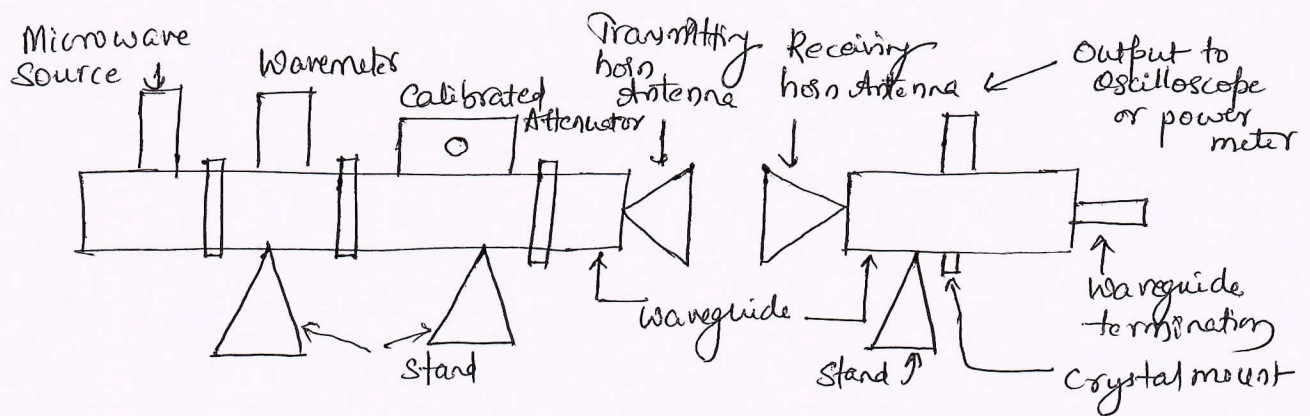 Microwave
Source
Wavemeter
Calibrated
Attenuator
Transmitting
horn
Antenna
Receiving
horn Antenna
Output to
Oscilloscope
or power
meter
Stand
Waveguide
Stand
Waveguide
termination
Crystal mount